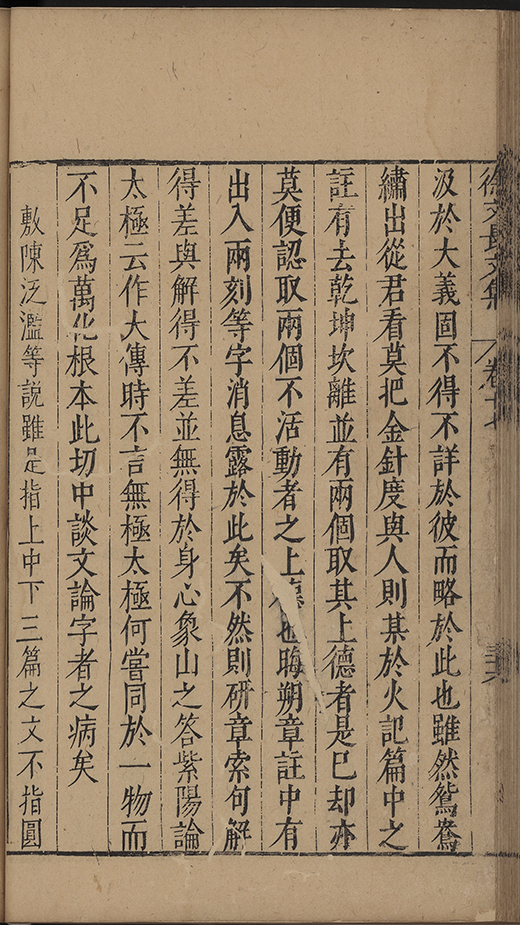 徐文長文集 卷十七
汲於大義固不得不詳於彼而略於此也雖然鴛鴦
繡出從君看莫把金針度與人則某於火記篇中之
註有去乾坤坎離並有兩個取其上德者是已却亦
莫便認取兩個不活動者之上德也晦朔章註中有
出入兩刻等字消息露於此矣不然則研章索句解
得差與解得不差並無得於身心象山之答紫陽論
太極云作大傳時不言無極太極何嘗同於一物而
不足爲萬化根本此切中談文論字者之病矣
敷陳泛濫等説雖是指上中下三篇之文不指圓